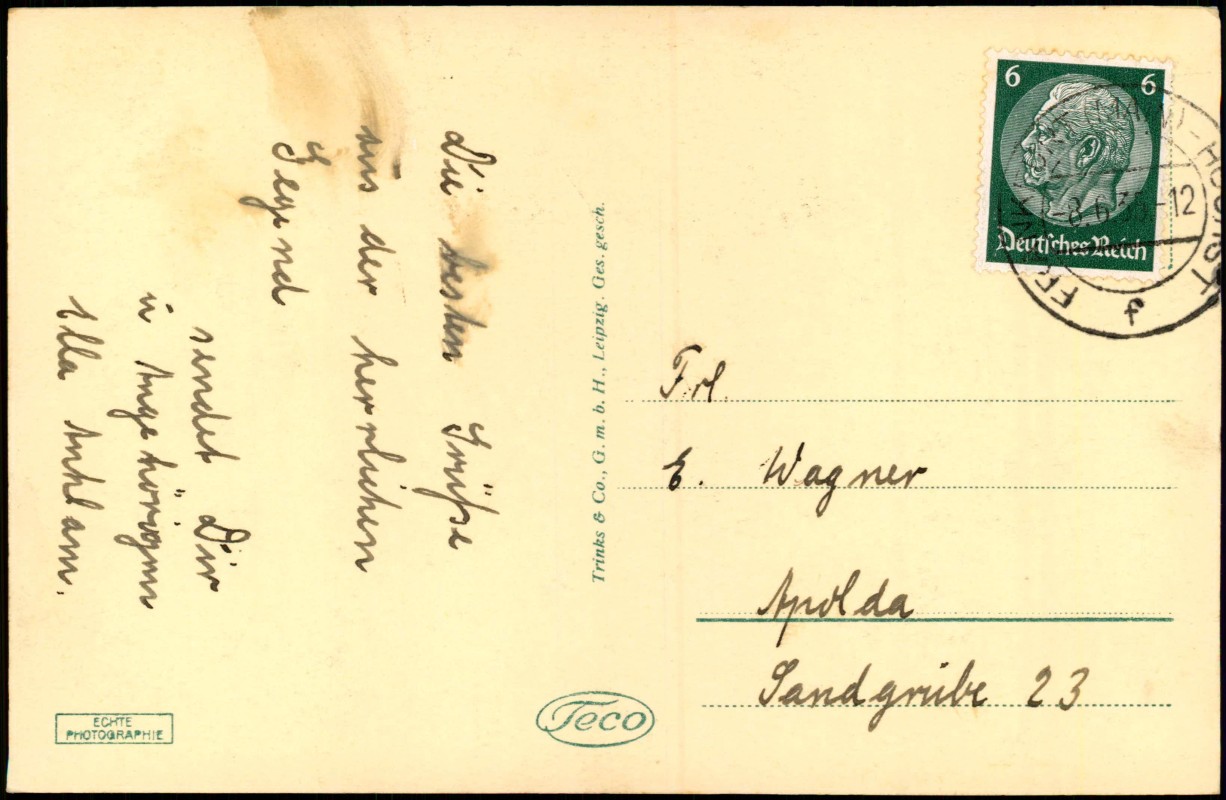 Die besten Grüße
aus der herrlichen
Gegend
sendet Dir
u Angehörigen
Trinks & Co., G. m. b. H., Leipzig. Ges. gesch.
6 6
Deutsches Reich
-HÖCHST
-8.6.38-12
f
Frl.
E. Wagner
Apolda
Sandgrube 23
ECHTE
PHOTOGRAPHIE
Teco